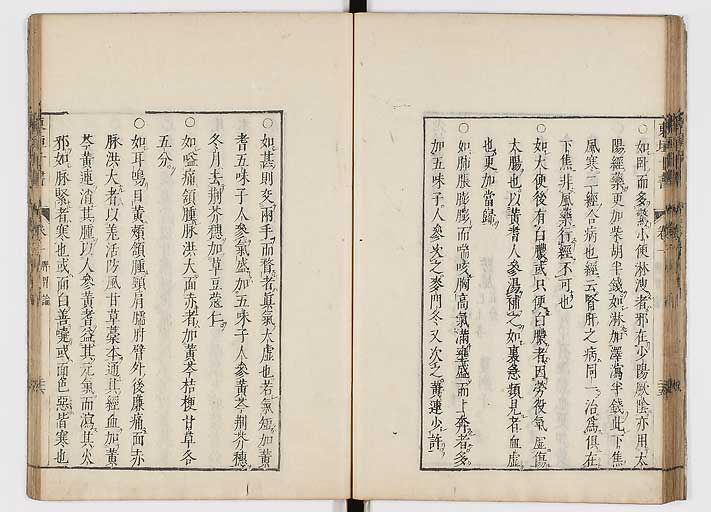 ○如臥而多驚小便淋溲者邪在少陽厥陰亦用太
陽經藥更加柴胡半錢如淋加澤瀉半錢此下焦
風寒二經合病也經云腎肝之病同一治爲俱在
下焦非風藥行經不可也
○如大便後有白膿或只便白膿者因勞役氣虛傷
大腸也以黃耆人參湯補之如裏急頻見者血虛
也更加當歸
○如肺脹膨膨而喘咳胸高氣滿壅盛而上奔者多
加五味子人參次之麥門冬又次之黃連少許
○如甚則交兩手而瞀者眞氣大虛也若氣短加黃
耆五味子人參氣盛加五味子人參黃芩荊芥穗
冬月去荊芥穗加草豆蔻仁
○如嗌痛頷腫脉洪大面赤者加黃芩桔梗甘草各
五分
○如耳鳴目黃頰頷腫頸肩臑肘臂外後廉痛面赤
脉洪大者以羌活防風甘草藁本通其經血加黃
芩黃連消其腫以人參黃耆益其元氣而瀉其火
邪如脉緊者寒也或面白善嚏或面色惡皆寒也